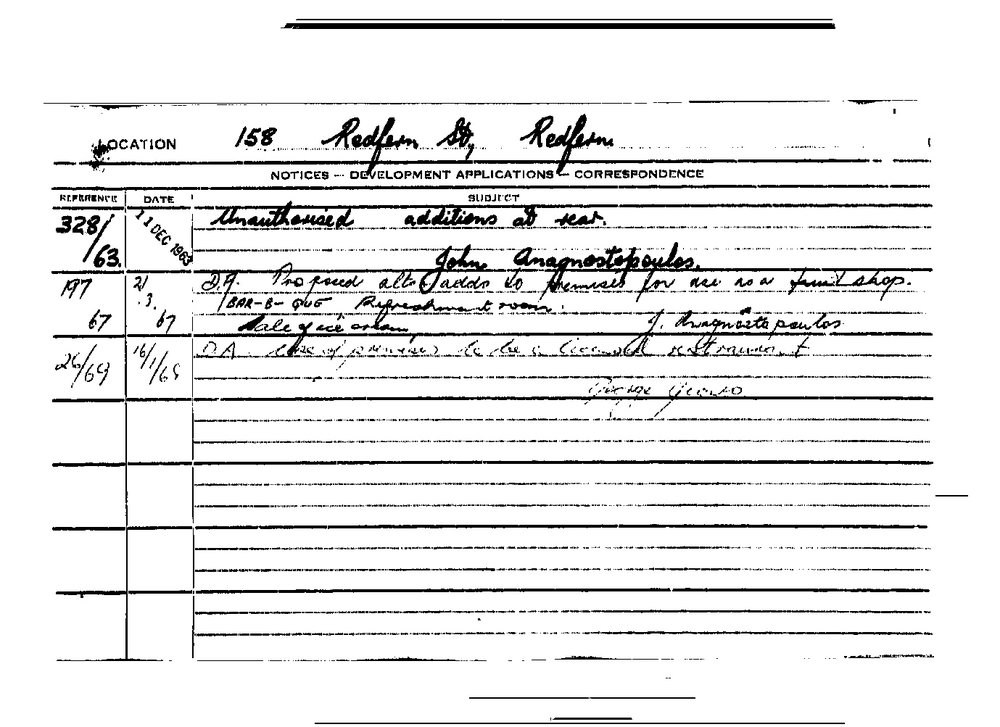 LOCATION 158 Redfern St, Redfern.
NOTICES — DEVELOPMENT APPLICATIONS — CORRESPONDENCE
REFERENCE DATE SUBJECT
328/63. 11 DEC 1963 Unauthorised additions at rear.
John Anagnostopoulos.
197 67 21.3.67 D.A. Proposed alts adds to premises for use as a fruit shop.
BAR-B-QUE Refreshment room.
Sale of ice cream J. Anagnostopoulos
26/69 16/1/69 D.A. Use of premises to be a licensed restaurant
George